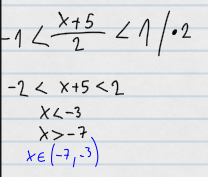 -1 < (x+5)/2 < 1 /•2
-2 < x+5 < 2
x<-3
x>-7
x∈(-7,-3)